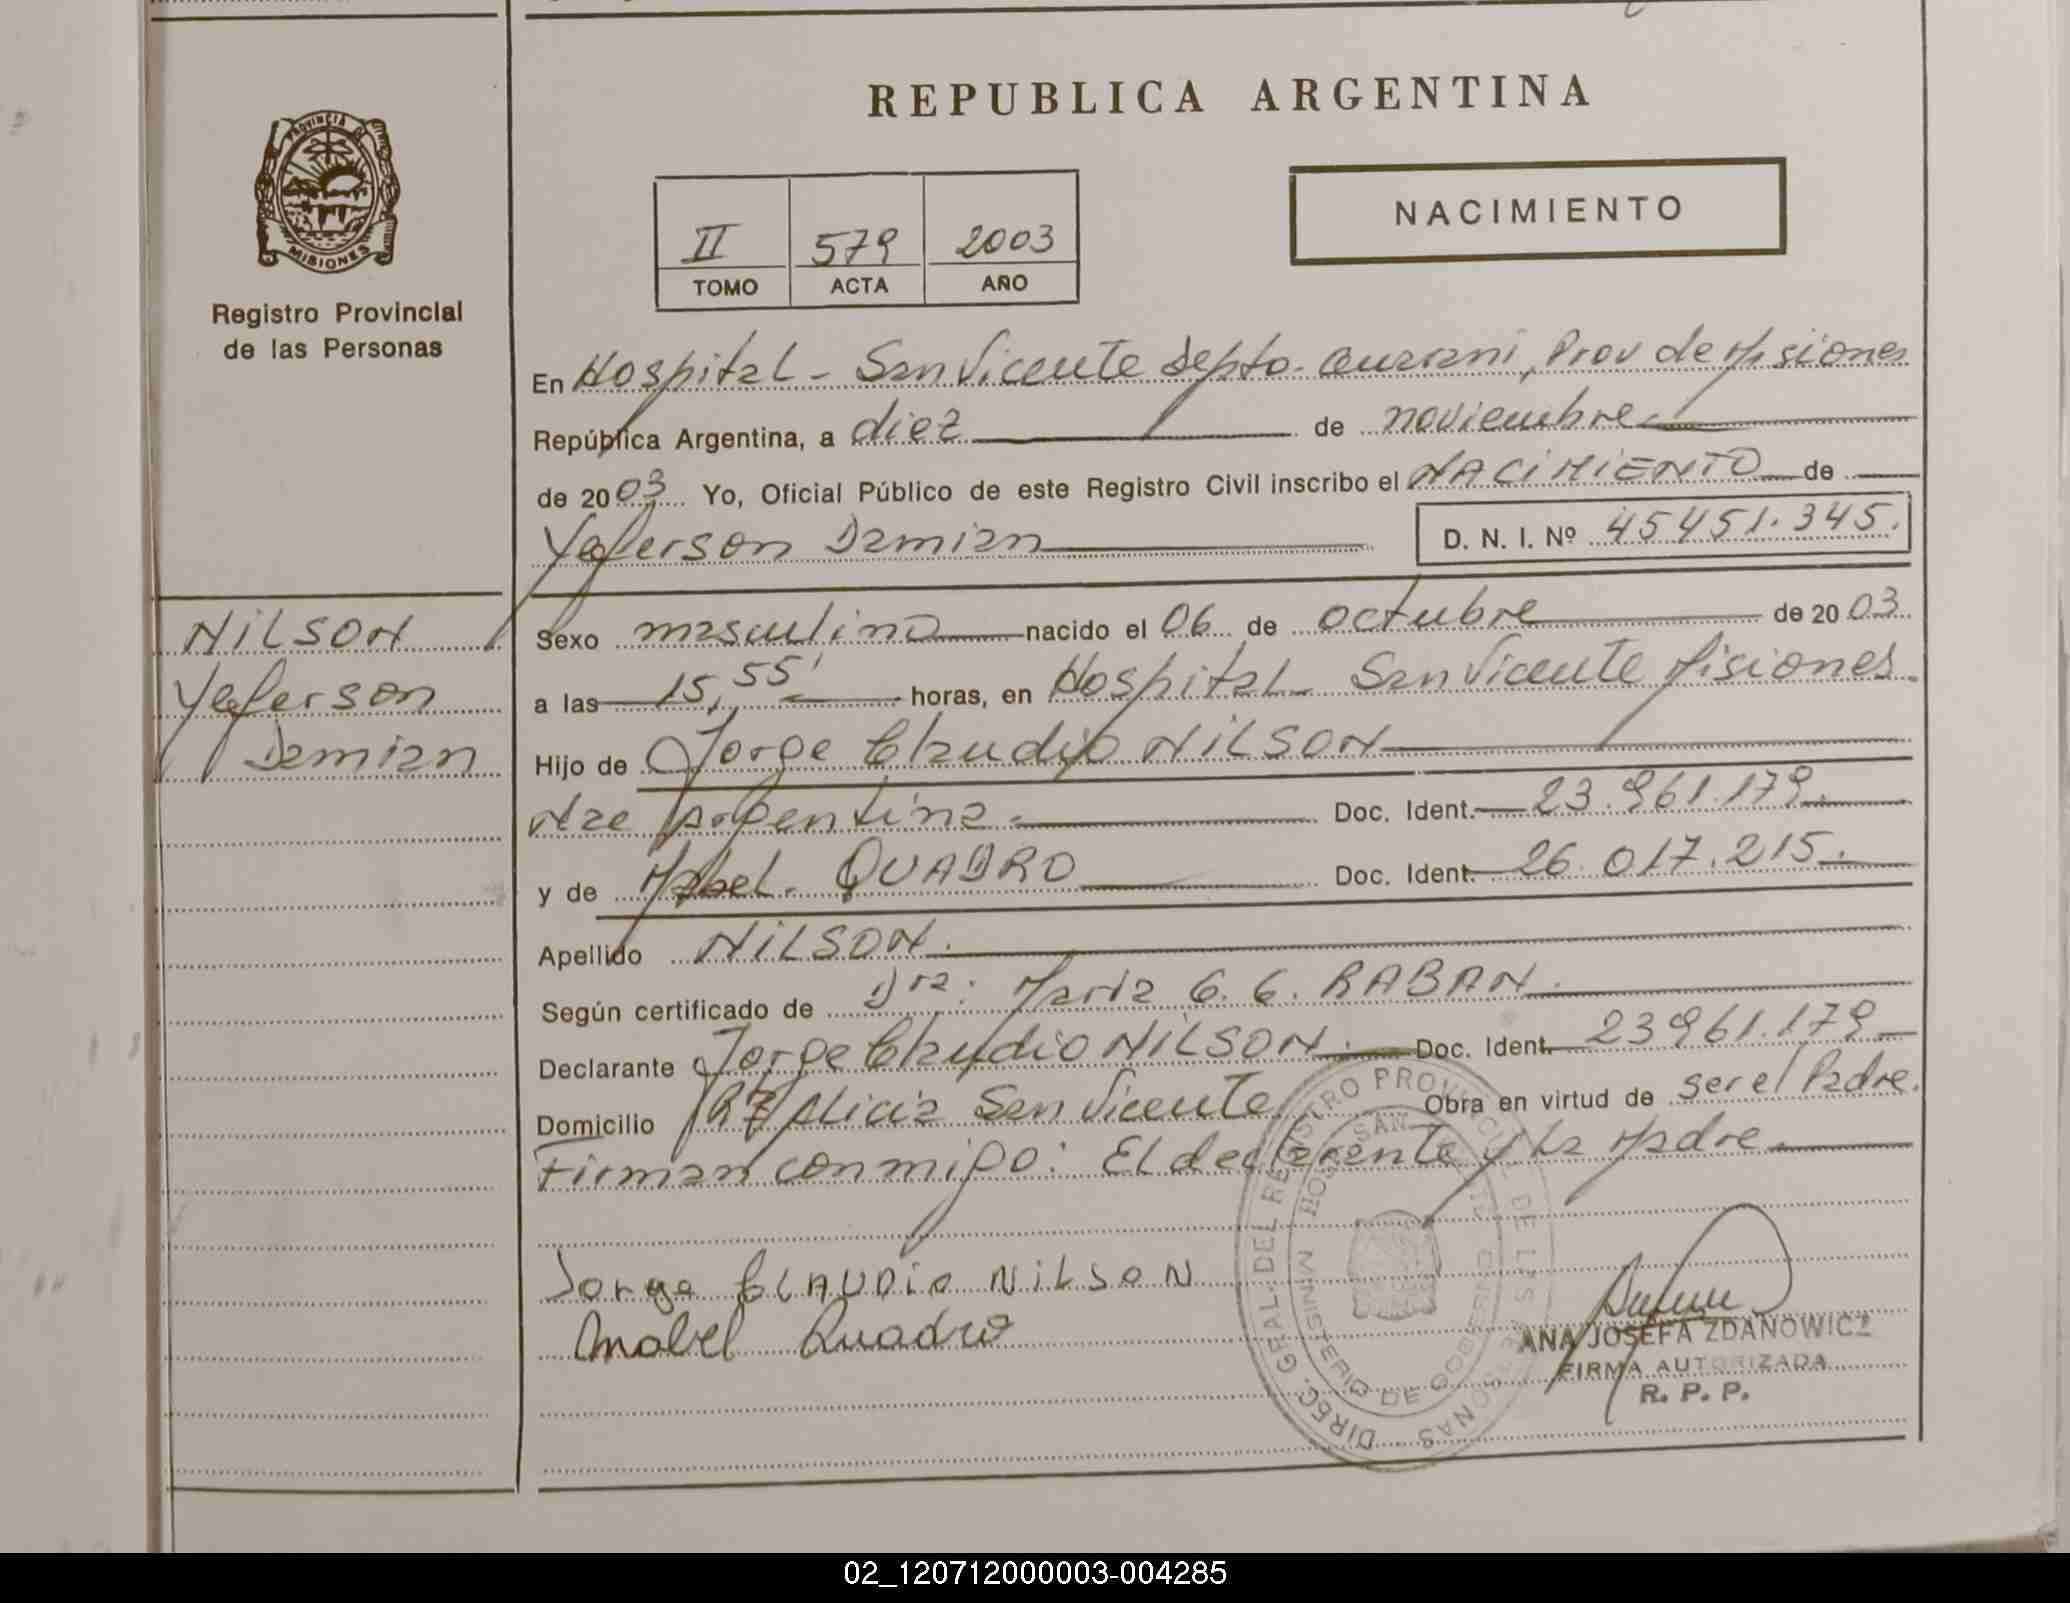 REPUBLICA ARGENTINA
PROVINCIA DE
MISIONES
Registro Provincial
de las Personas
II 579 2003
TOMO ACTA AÑO
NACIMIENTO
En Hospital - San Vicente Depto. Guarani, Prov de Misiones
República Argentina, a diez de noviembre
de 2003 Yo, Oficial Público de este Registro Civil inscribo el NACIMIENTO de
Yeferson Damian
D. N. I. Nº 45451.345.
NILSON
Yeferson
Damian
Sexo masculino nacido el 06 de octubre de 2003
a las 15,55' horas, en Hospital San Vicente Misiones.
Hijo de Jorge Claudio NILSON
Nac Argentina. Doc. Ident. 23.961.179.
y de Mabel. QUADRO Doc. Ident. 26.017.215.
Apellido NILSON.
Según certificado de Dra. Maria G. G. RABAN.
Declarante Jorge Claudio NILSON. Doc. Ident. 23961.179
Domicilio Alicia San Vicente Obra en virtud de ser el Padre.
Firman conmigo: El declarante y La Madre.
Jorge CLAUDIO NILSON
Mabel Quadro
DIREC. GRAL. DEL REGISTRO PROVINCIAL DE LAS PERSONAS
MINISTERIO DE GOBIERNO
HOSP. SAN VICENTE
ANA JOSEFA ZDANOWICZ
FIRMA AUTORIZADA
R. P. P.
02_120712000003-004285